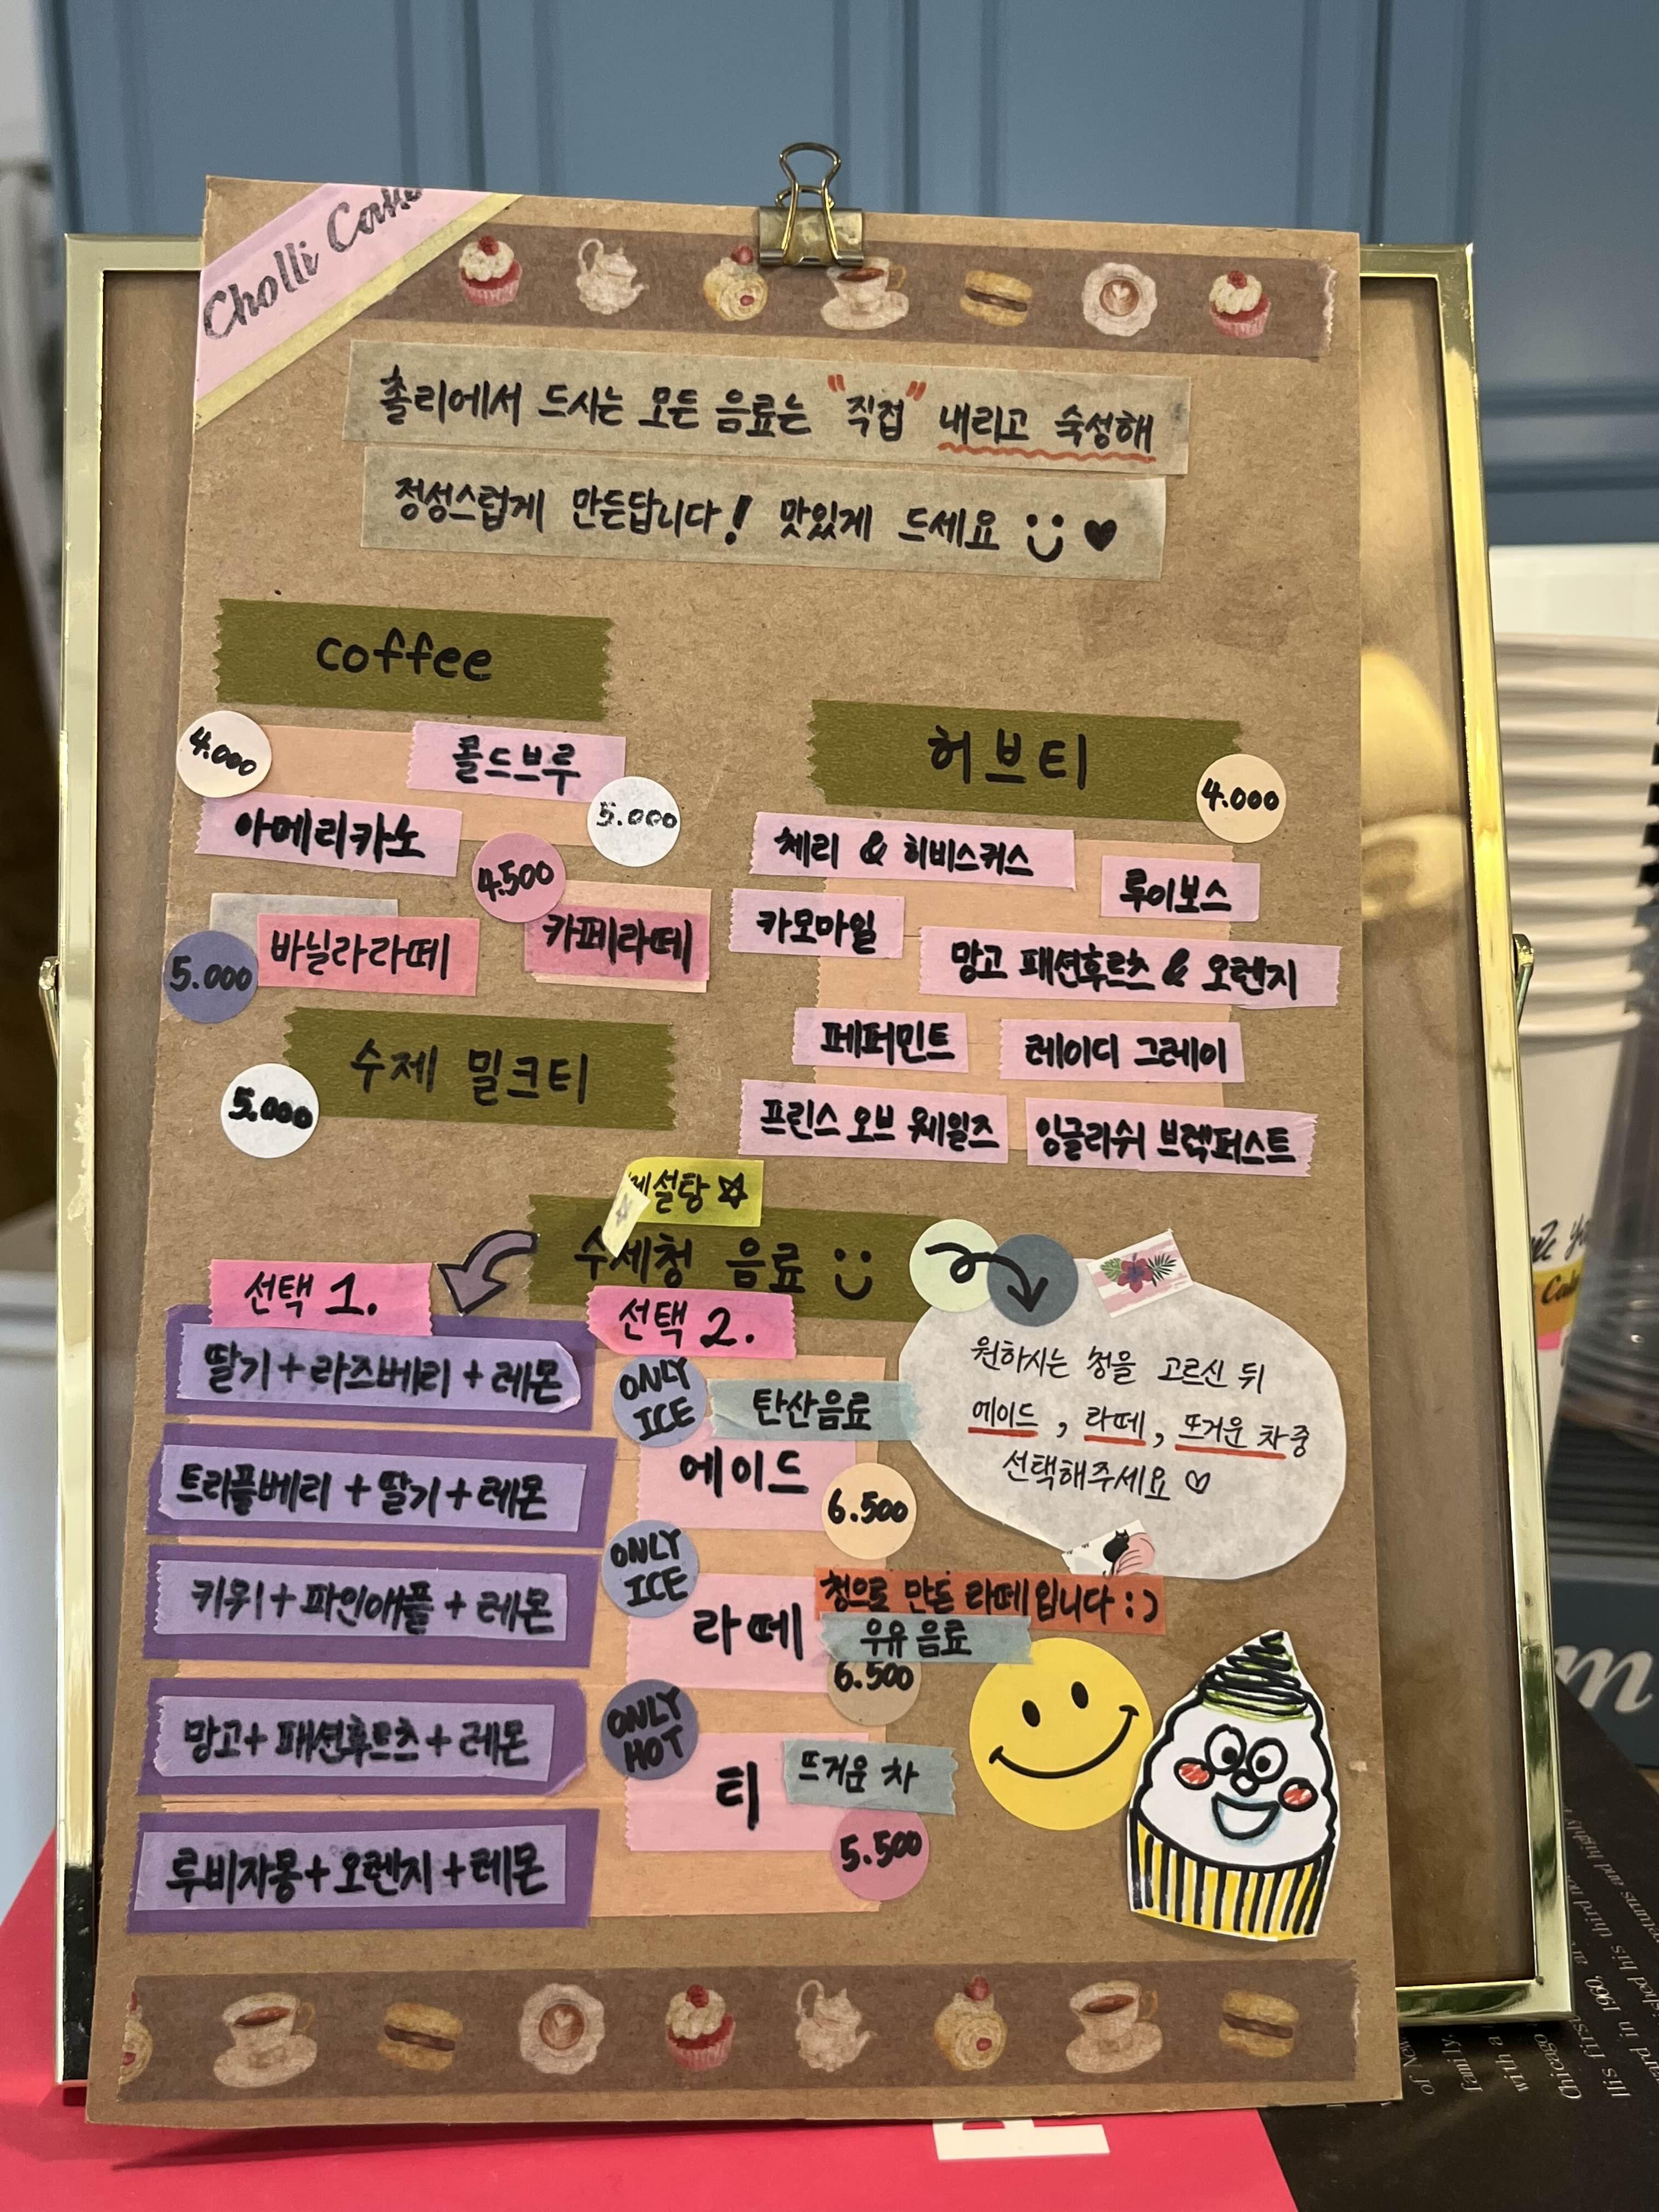 Cholli
촐리에서 드시는 모든 음료는 "직접" 내리고 숙성해
정성스럽게 만든답니다! 맛있게 드세요
coffee
4.000
콜드브루
5.000
아메리카노
4.500
카페라떼
바닐라라떼
5.000
수제 밀크티
5.000
허브티
4.000
체리 & 히비스커스
루이보스
카모마일
망고 패션후르츠 & 오렌지
페퍼민트
레이디 그레이
프린스 오브 웨일즈
잉글리쉬 브렉퍼스트
설탕
수제청 음료
선택 1.
딸기+라즈베리+레몬
트리플베리+딸기+레몬
키위+파인애플+레몬
망고+패션후르츠+레몬
루비자몽+오렌지+레몬
선택 2.
ONLY
ICE
탄산음료
에이드
6.500
ONLY
ICE
라떼
청으로 만든 라떼입니다 :)
우유 음료
6.500
ONLY
HOT
티
뜨거운 차
5.500
원하시는 청을 고르신 뒤
에이드, 라떼, 뜨거운 차 중
선택해주세요